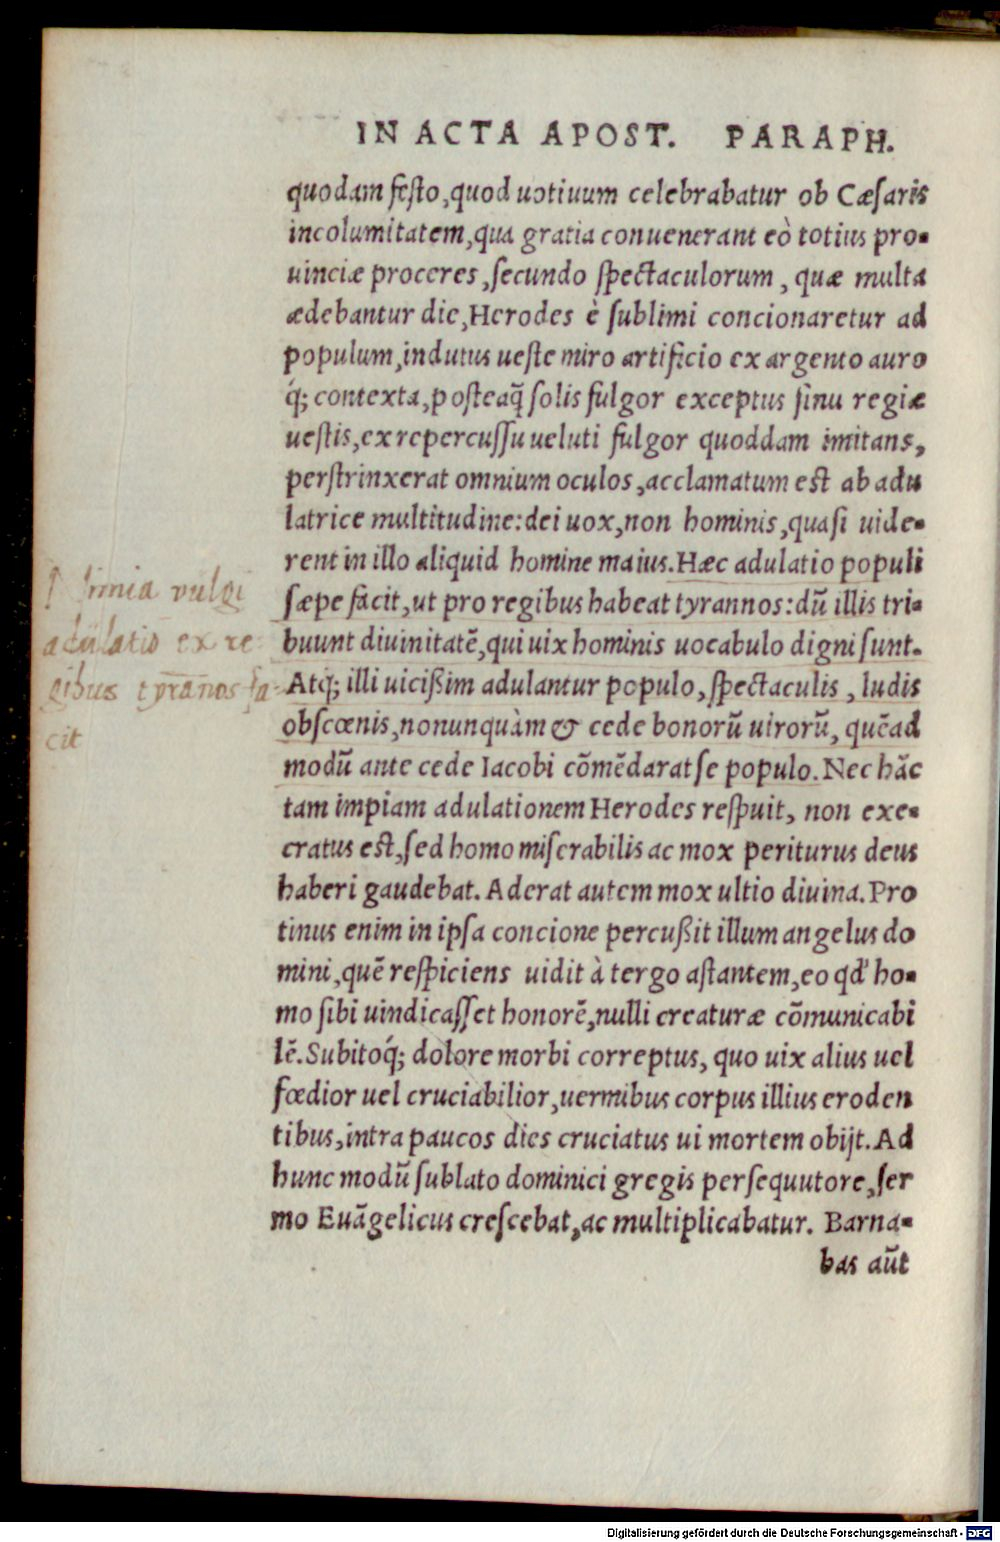 IN ACTA APOST. PARAPH.
quodam festo, quod uotiuum celebrabatur ob Cæsaris
incolumitatem, qua gratia conuenerant eò totius pro-
uinciæ proceres, secundo spectaculorum, quæ multa
ædebantur die, Herodes è sublimi concionaretur ad
populum, indutus ueste miro artificio ex argento auro
q́; contexta, posteaq̃ solis fulgor exceptus sinu regiæ
uestis, ex repercussu ueluti fulgor quoddam imitans,
perstrinxerat omnium oculos, acclamatum est ab adu
latrice multitudine: dei uox, non hominis, quasi uide-
rent in illo aliquid homine maius. Hæc adulatio populi
sæpe facit, ut pro regibus habeat tyrannos: dũ illis tri-
buunt diuinitatẽ, qui uix hominis uocabulo digni sunt.
Atq; illi uicißim adulantur populo, spectaculis, ludis
obscœnis, nonunquàm & cede bonorũ uirorũ, quẽad
modũ ante cede Iacobi cõmẽdarat se populo. Nec hãc
tam impiam adulationem Herodes respuit, non exe-
cratus est, sed homo miserabilis ac mox periturus deus
haberi gaudebat. Aderat autem mox ultio diuina. Pro
tinus enim in ipsa concione percußit illum angelus do
mini, quẽ respiciens uidit à tergo astantem, eo qđ ho-
mo sibi uindicasset honorẽ, nulli creaturæ cõmunicabi
lẽ. Subitoq́; dolore morbi correptus, quo uix alius uel
fœdior uel cruciabilior, uermibus corpus illius eroden
tibus, intra paucos dies cruciatus ui mortem obijt. Ad
hunc modũ sublato dominici gregis persequutore, ser
mo Euãgelicus crescebat, ac multiplicabatur. Barna-
bas aũt
vulgi
adulatio ex re
gibus tyrãnos fa-
cit
Digitalisierung gefördert durch die Deutsche Forschungsgemeinschaft - DFG